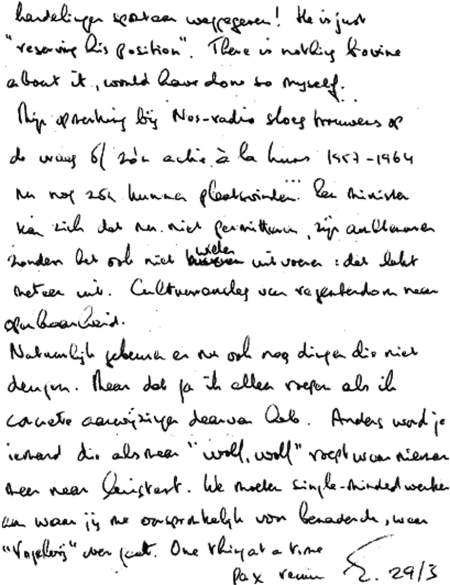 handelingen spontaan weggegeven! He is just
"reserving his position". There is nothing bovine
about it, would have done so myself.
Mijn opmerking bij Nos-radio sloeg trouwens op
de vraag of zo'n actie à la Luns 1957-1964
nu nog zou kunnen plaatsvinden. Een minister
kan zich dat nu niet permitteren, zijn ambtenaren
zouden het ook niet willen uitvoeren: dat lekt
meteen uit. Cultuuromslag van regentendom naar
openbaarheid.
Natuurlijk gebeuren er nu ook nog dingen die niet
deugen. Maar dat ga ik alleen roepen als ik
concrete aanwijzingen daarvan heb. Anders word je
iemand die alsmaar "wolf, wolf" roept waar niemand
meer naar luistert. We moeten single-minded werken
aan waar jij me oorspronkelijk voor benaderde, waar
"Vogelvrij" over gaat. One thing at a time
29/3